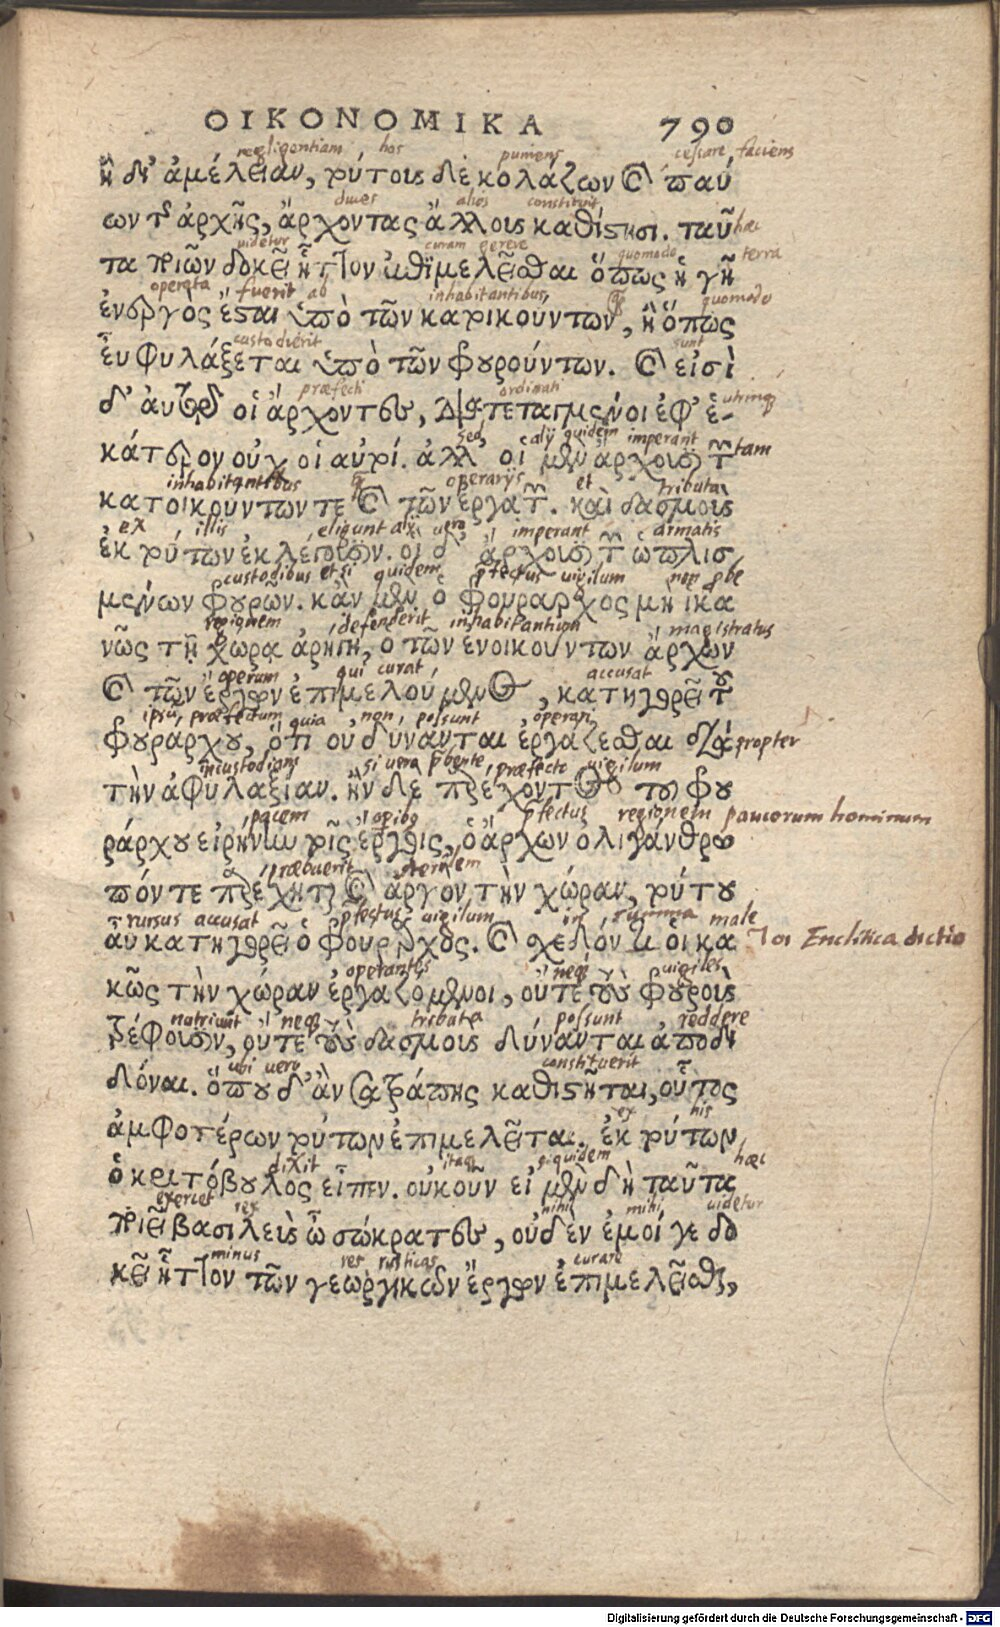 ΟΙΚΟΝΟΜΙΚΑ 790
negligentiam hos puniens cessare faciens
ἢ δι' ἀμέλειαν, τούτους δὲ κολάζων καὶ παύ
duces alios constituit
ων τῆς ἀρχῆς, ἄρχοντας ἄλλους καθίστησι. ταῦ hæc
videtur curam gerere quomodo terra
τα ποιῶν δοκεῖ ἧττον ἐπιμελεῖσθαι ὅπως ἡ γῆ
operata fuerit ab inhabitantibus, quomodo
ἐνεργὸς ἔσται ὑπὸ τῶν κατοικούντων, ἢ ὅπως
custodierit sunt
εὖ φυλάξεται ὑπὸ τῶν φρουρούντων. καὶ εἰσὶ
præfecti ordinati utrinque
δ' αὐτῷ οἱ ἄρχοντες, διατεταγμένοι ἐφ' ἑ-
sed alij quidem imperant
κάτερον οὐχ οἱ αὐτοί. ἀλλ' οἱ μὲν ἄρχουσι τῶν tam
inhabitantibus operarijs et tributa
κατοικούντων τε καὶ τῶν ἐργατῶν. καὶ δασμοὺς
ex illis eligunt alij vero imperant armatis
ἐκ τούτων ἐκλέγουσιν. οἱ δ' ἄρχουσι τῶν ὡπλισ
custodibus et si quidem præfectus vigilum non probe
μένων φρουρῶν. κἂν μὲν ὁ φρούραρχος μὴ ἱκα
regionem defenderit inhabitantium magistratus
νῶς τῇ χώρᾳ ἀρήγῃ, ὁ τῶν ἐνοικούντων ἄρχων
operum qui curat, accusat
καὶ τῶν ἔργων ἐπιμελούμενος, κατηγορεῖ τοῦ
ipsum præfectum quia non possunt operari
φρουράρχου, ὅτι οὐ δύνανται ἐργάζεσθαι διὰ propter
incustodiam si vero præbente præfecto vigilum
τὴν ἀφυλαξίαν. ἢν δὲ παρέχοντος τοῦ φρου
pacem operibus præfectus regionem paucorum hominum
ράρχου εἰρήνην τοῖς ἔργοις, ὁ ἄρχων ὀλιγάνθρω
præbuerit sterilem
πόν τε παρέχηται καὶ ἀργὸν τὴν χώραν, τούτου
rursus accusat præfectus vigilum in summa male
αὖ κατηγορεῖ ὁ φρούραρχος. καὶ σχεδόν τι οἱ κα Τοι Enclitica dictio
operantes neque vigiles
κῶς τὴν χώραν ἐργαζόμενοι, οὔτε τοὺς φρουροὺς
nutriunt neque tributa possunt reddere
τρέφουσιν, οὔτε τοὺς δασμοὺς δύνανται ἀποδι
ubi vero constituerit
δόναι. ὅπου δ' ἂν σατράπης καθιστῆται, οὗτος
ex his
ἀμφοτέρων τούτων ἐπιμελεῖται. ἐκ τούτων
dixit itaque siquidem hæc
ὁ κριτόβουλος εἶπεν. οὐκοῦν εἰ μὲν δὴ ταῦτα
exercet rex nihil mihi videtur
ποιεῖ βασιλεὺς ὦ σώκρατες, οὐδὲν ἐμοί γε δο
minus res rusticas curare
κεῖ ἧττον τῶν γεωργικῶν ἔργων ἐπιμελεῖσθαι,
Digitalisierung gefördert durch die Deutsche Forschungsgemeinschaft - DFG